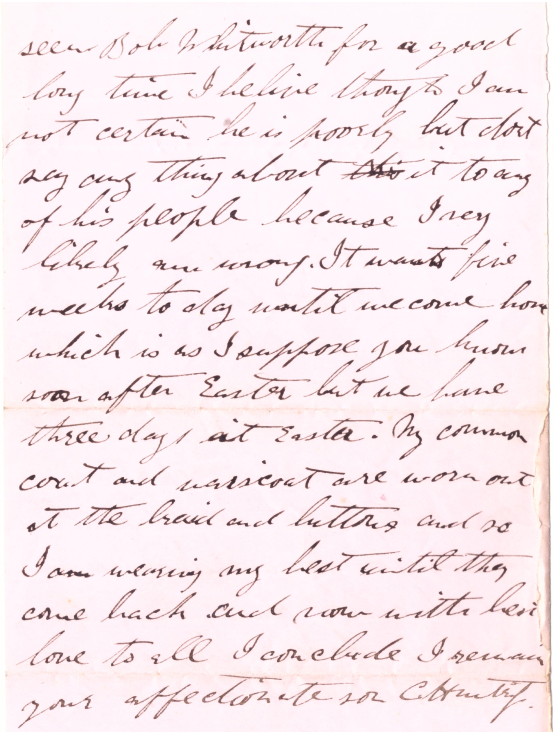 seen Bob Whitworth for a good
long time I belive though I am
not certain he is poorly but dont
say any thing about this it to any
of his people because I very
likely am wrong. It wants five
weeks to day until we come home
which is as I suppose you know
soon after Easter but we have
three days at Easter. My common
coat and waiscoat are worn out
at the braid and buttons and so
I am wearing my best until they
come back and now with best
love to all I conclude I remain
your affectionate son